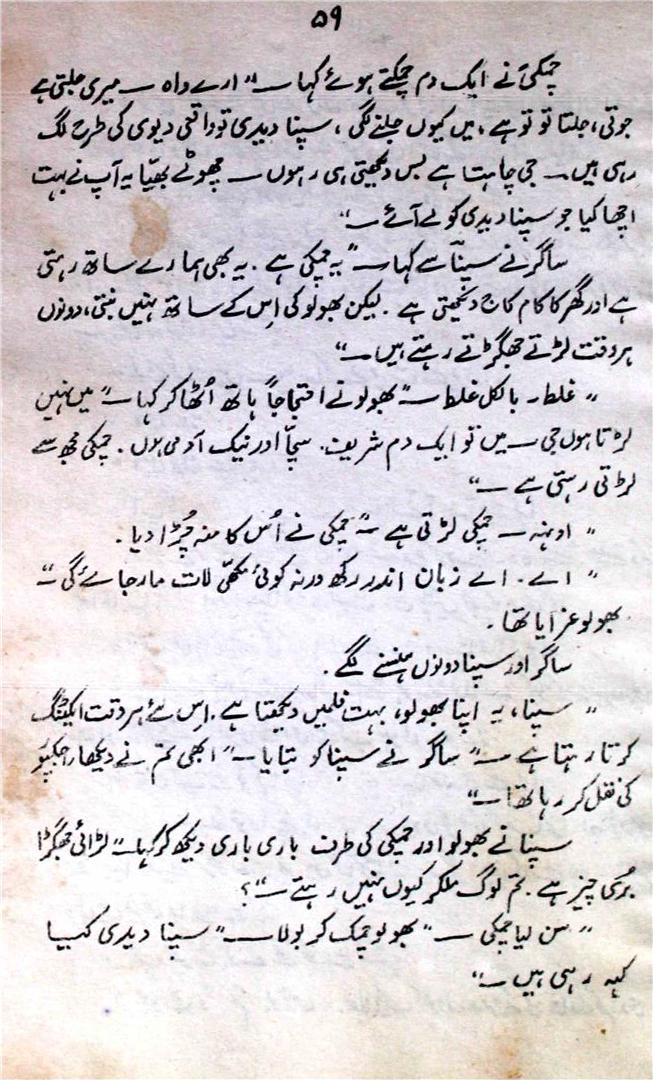 ۵۹
چمکی نے ایک دم چمکتے ہوئے کہا ــ " ارے واہ ــ میری جلتی ہے
جوتی، جلتا تو تو ہے، میں کیوں جلنے لگی، سپنا دیدی تو واقعی دیوی کی طرح لگ
رہی ہیں ــ جی چاہتا ہے بس دیکھتی ہی رہوں ــ چھوٹے بھیّا یہ آپ نے بہت
اچھا کیا جو سپنا دیدی کو لے آئے ــ "
ساگر نے سپنا سے کہا ــ " یہ چمکی ہے۔ یہ بھی ہمارے ساتھ رہتی
ہے اور گھر کا کام کاج دیکھتی ہے۔ لیکن بھولو کی اس کے ساتھ نہیں بنتی، دونوں
ہر وقت لڑتے جھگڑتے رہتے ہیں ــ "
" غلط ــ بالکل غلط ــ " بھولو نے احتجاجاً ہاتھ اُٹھا کر کہا ــ " میں نہیں
لڑتا ہوں جی ــ میں تو ایک دم شریف۔ سچّا اور نیک آدمی ہوں۔ چمکی مجھ سے
لڑتی رہتی ہے ــ "
" اونہہ ــ چمکی لڑتی ہے ــ " چمکی نے اُس کا منہ چُڑا دیا۔
" اے۔ اے زبان اندر رکھ ورنہ کوئی مکھّی لات مار جائے گی ــ "
بھولو غرایا تھا۔
ساگر اور سپنا دونوں ہنسنے لگے۔
" سپنا، یہ اپنا بھولو، بہت فلمیں دیکھتا ہے۔ اِس لئے ہر وقت ایکٹنگ
کرتا رہتا ہے ــ " ساگر نے سپنا کو بتایا ــ " ابھی تم نے دیکھا، راجکپور
کی نقل کر رہا تھا ــ "
سپنا نے بھولو اور چمکی کی طرف باری باری دیکھ کر کہا ــ " لڑائی جھگڑا
بُری چیز ہے۔ تم لوگ ملکر کیوں نہیں رہتے ــ "؟
" سن لیا چمکی ــ " بھولو چمک کر بولا ــ " سپنا دیدی کیا
کہہ رہی ہیں ــ "